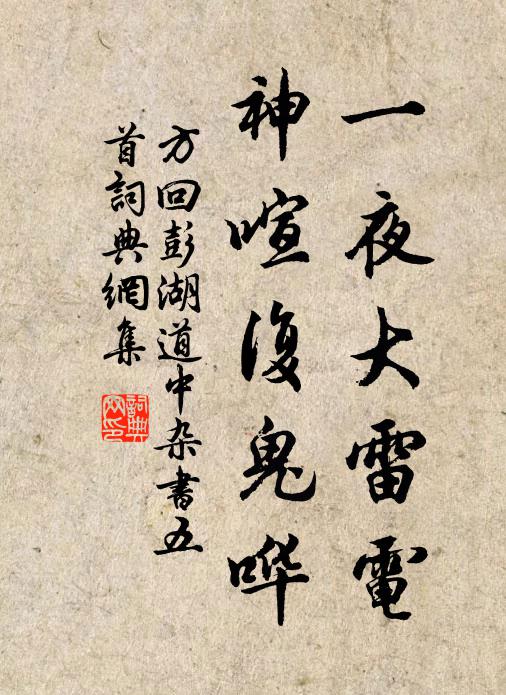 一夜大雷電
神喧復鬼哗
方回彭湖道中杂書五
首詞典網集
詞典网印